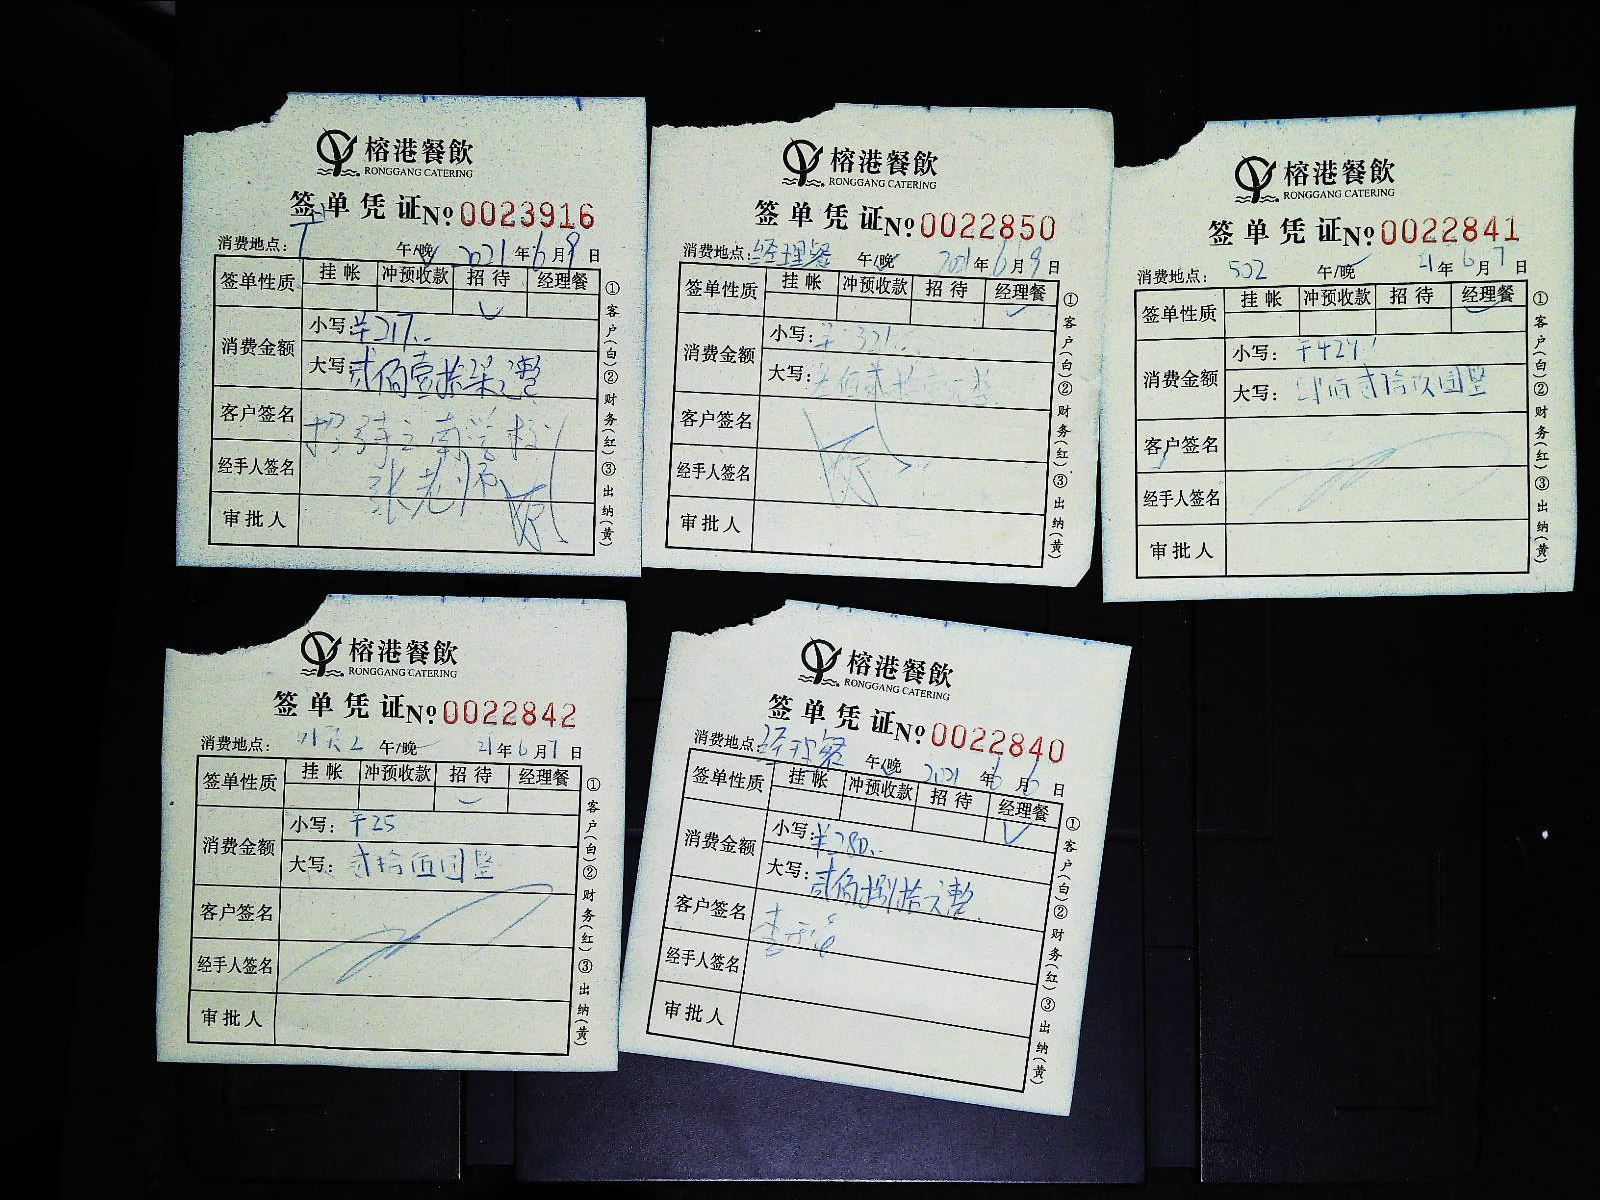 榕港餐飲
RONGGANG CATERING
签单凭证 № 0023916
消费地点： 午/晚 2021年6月9日
签单性质 挂帐 冲预收款 招待 经理餐
消费金额 小写：￥217..
大写：贰佰壹拾柒元整
客户签名 招待 南学校
经手人签名 张老师
审批人
①客户(白)②财务(红)③出纳(黄)
榕港餐飲
RONGGANG CATERING
签单凭证 № 0022850
消费地点：经理餐 午/晚 2021年6月9日
签单性质 挂帐 冲预收款 招待 经理餐
消费金额 小写：￥321..
大写：佰贰拾元整
客户签名
经手人签名
审批人
①客户(白)②财务(红)③出纳(黄)
榕港餐飲
RONGGANG CATERING
签单凭证 № 0022841
消费地点：502 午/晚 21年6月7日
签单性质 挂帐 冲预收款 招待 经理餐
消费金额 小写：
大写：肆佰贰拾玖圆整
客户签名
经手人签名
审批人
①客户(白)②财务(红)③出纳(黄)
榕港餐飲
RONGGANG CATERING
签单凭证 № 0022842
消费地点： 午/晚 21年6月7日
签单性质 挂帐 冲预收款 招待 经理餐
消费金额 小写：￥25
大写：贰拾伍圆整
客户签名
经手人签名
审批人
①客户(白)②财务(红)③出纳(黄)
榕港餐飲
RONGGANG CATERING
签单凭证 № 0022840
消费地点：经理餐 午/晚 2021年6月6日
签单性质 挂帐 冲预收款 招待 经理餐
消费金额 小写：￥280..
大写：贰佰捌拾元整
客户签名
经手人签名
审批人
①客户(白)②财务(红)③出纳(黄)